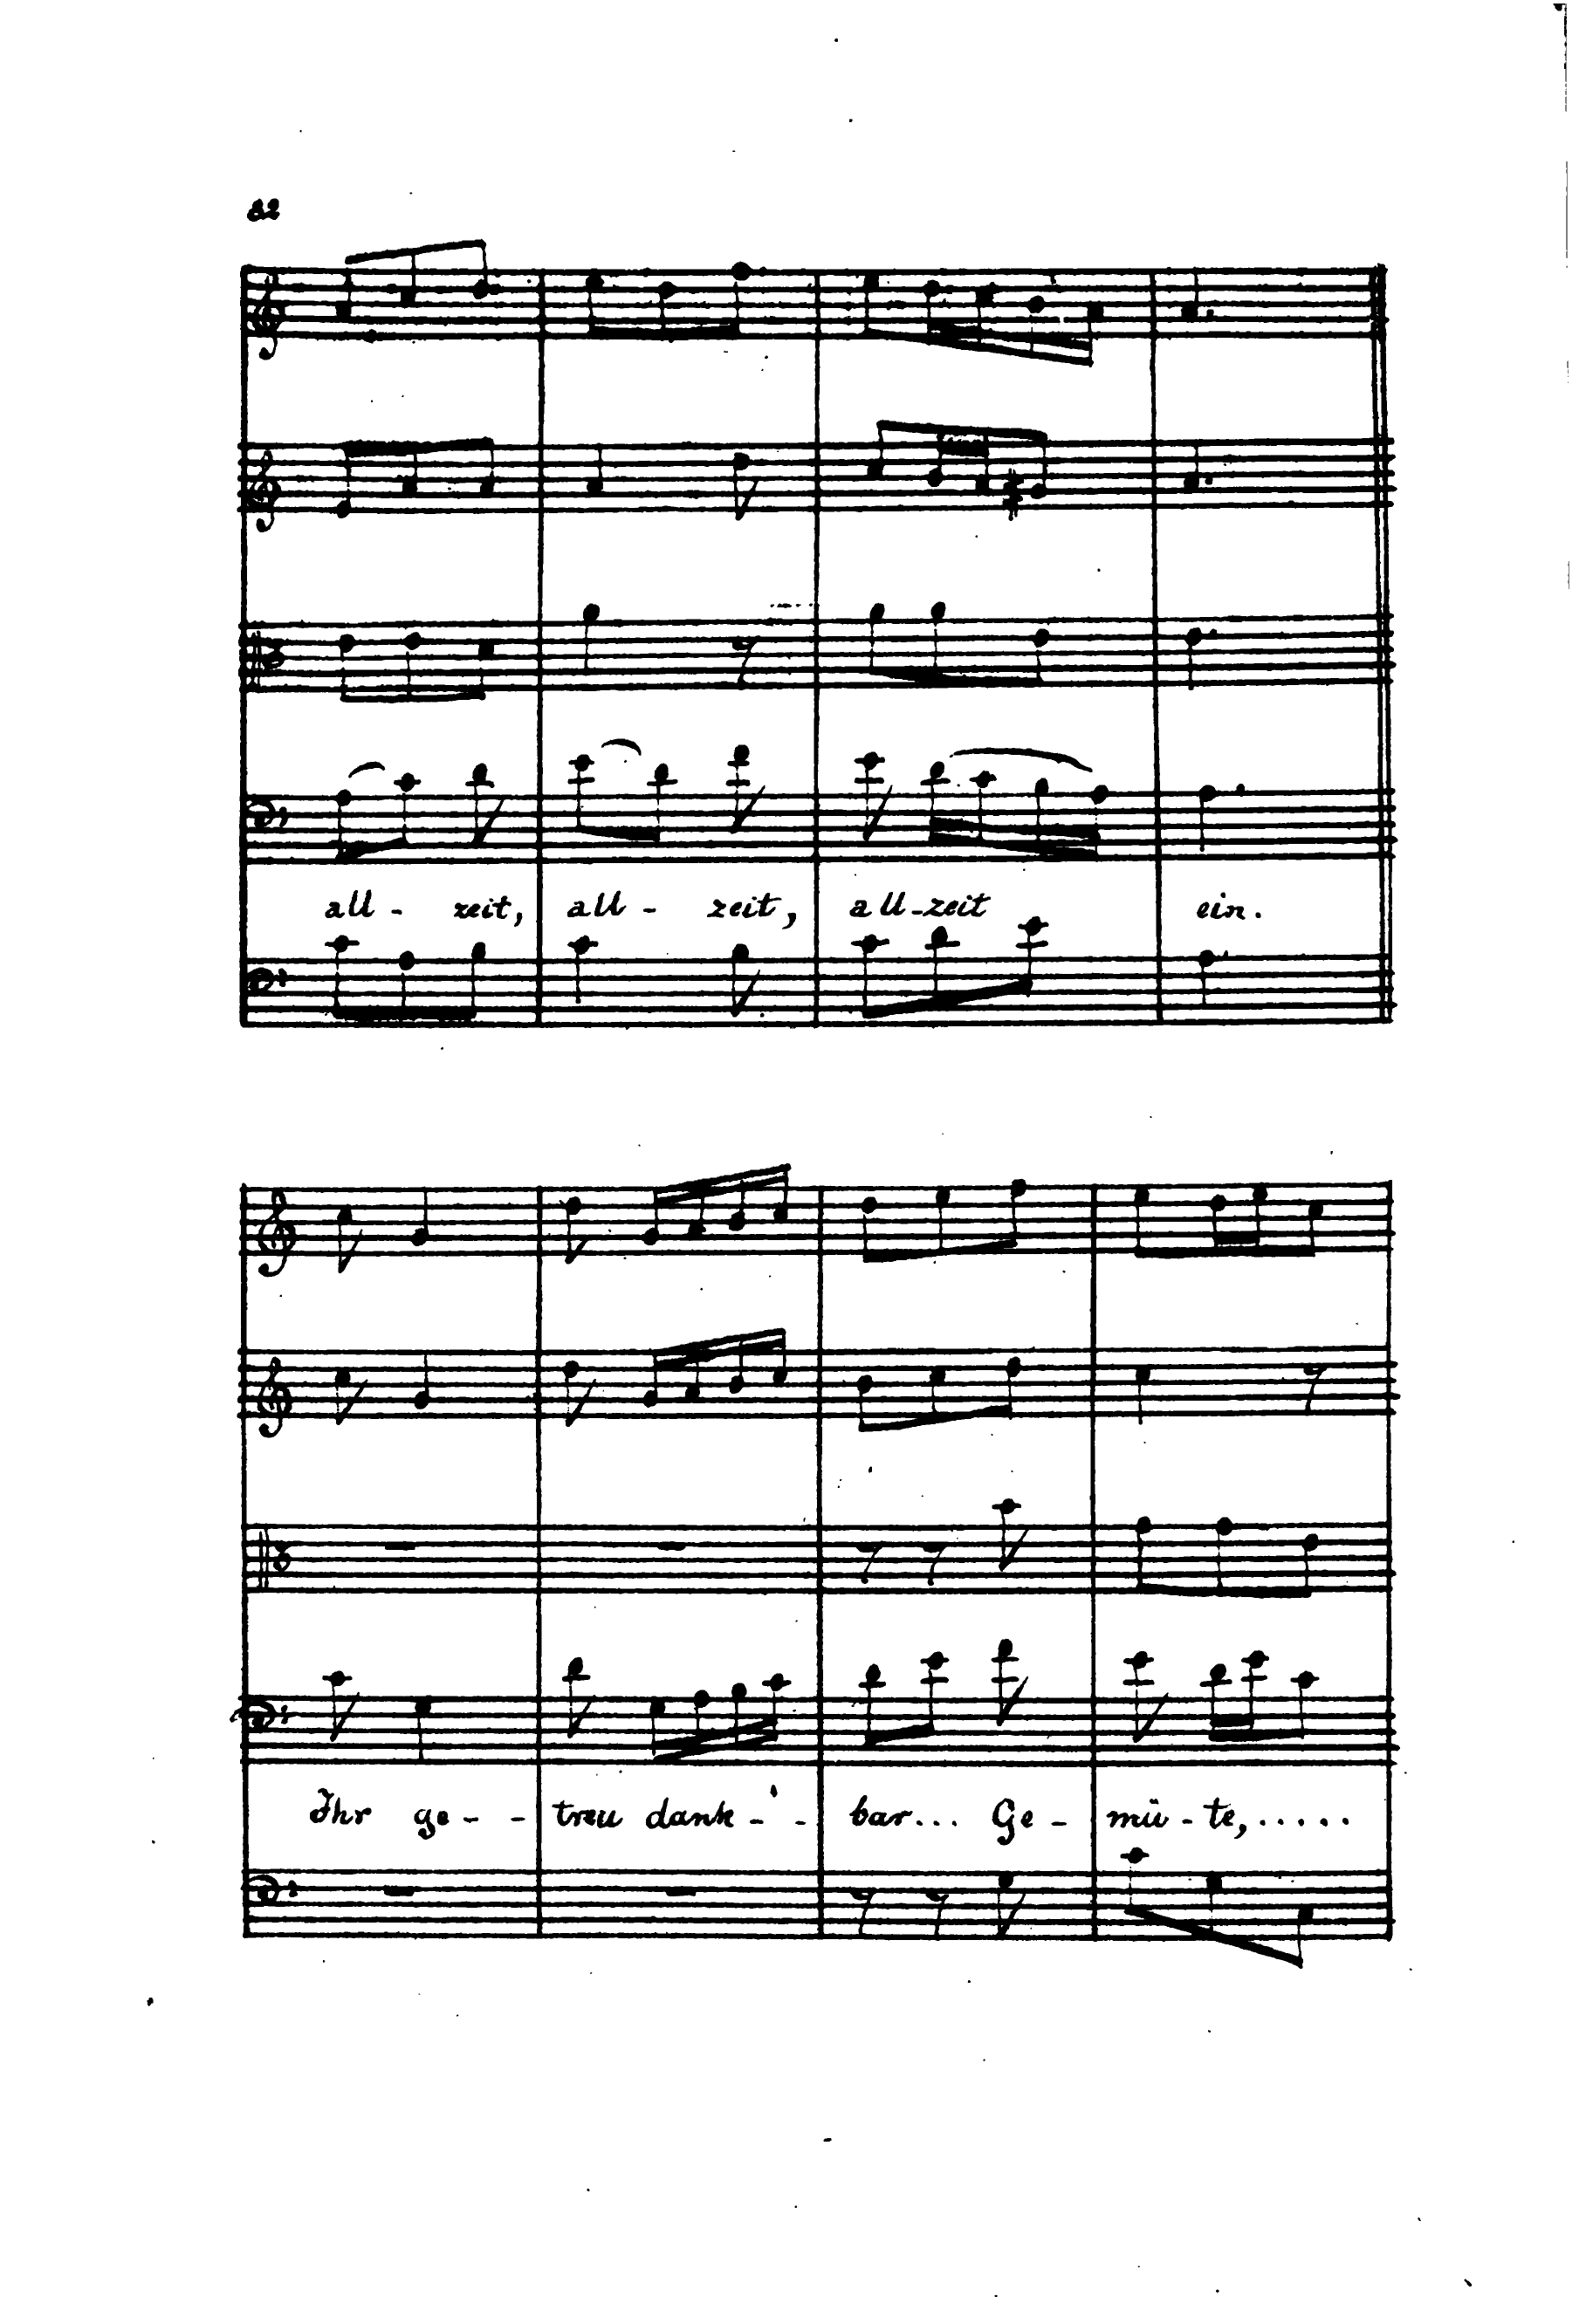 82
all - zeit, all - zeit, all-zeit ein.
Ihr ge - - treu dank - - bar... Ge - mü - te,.....